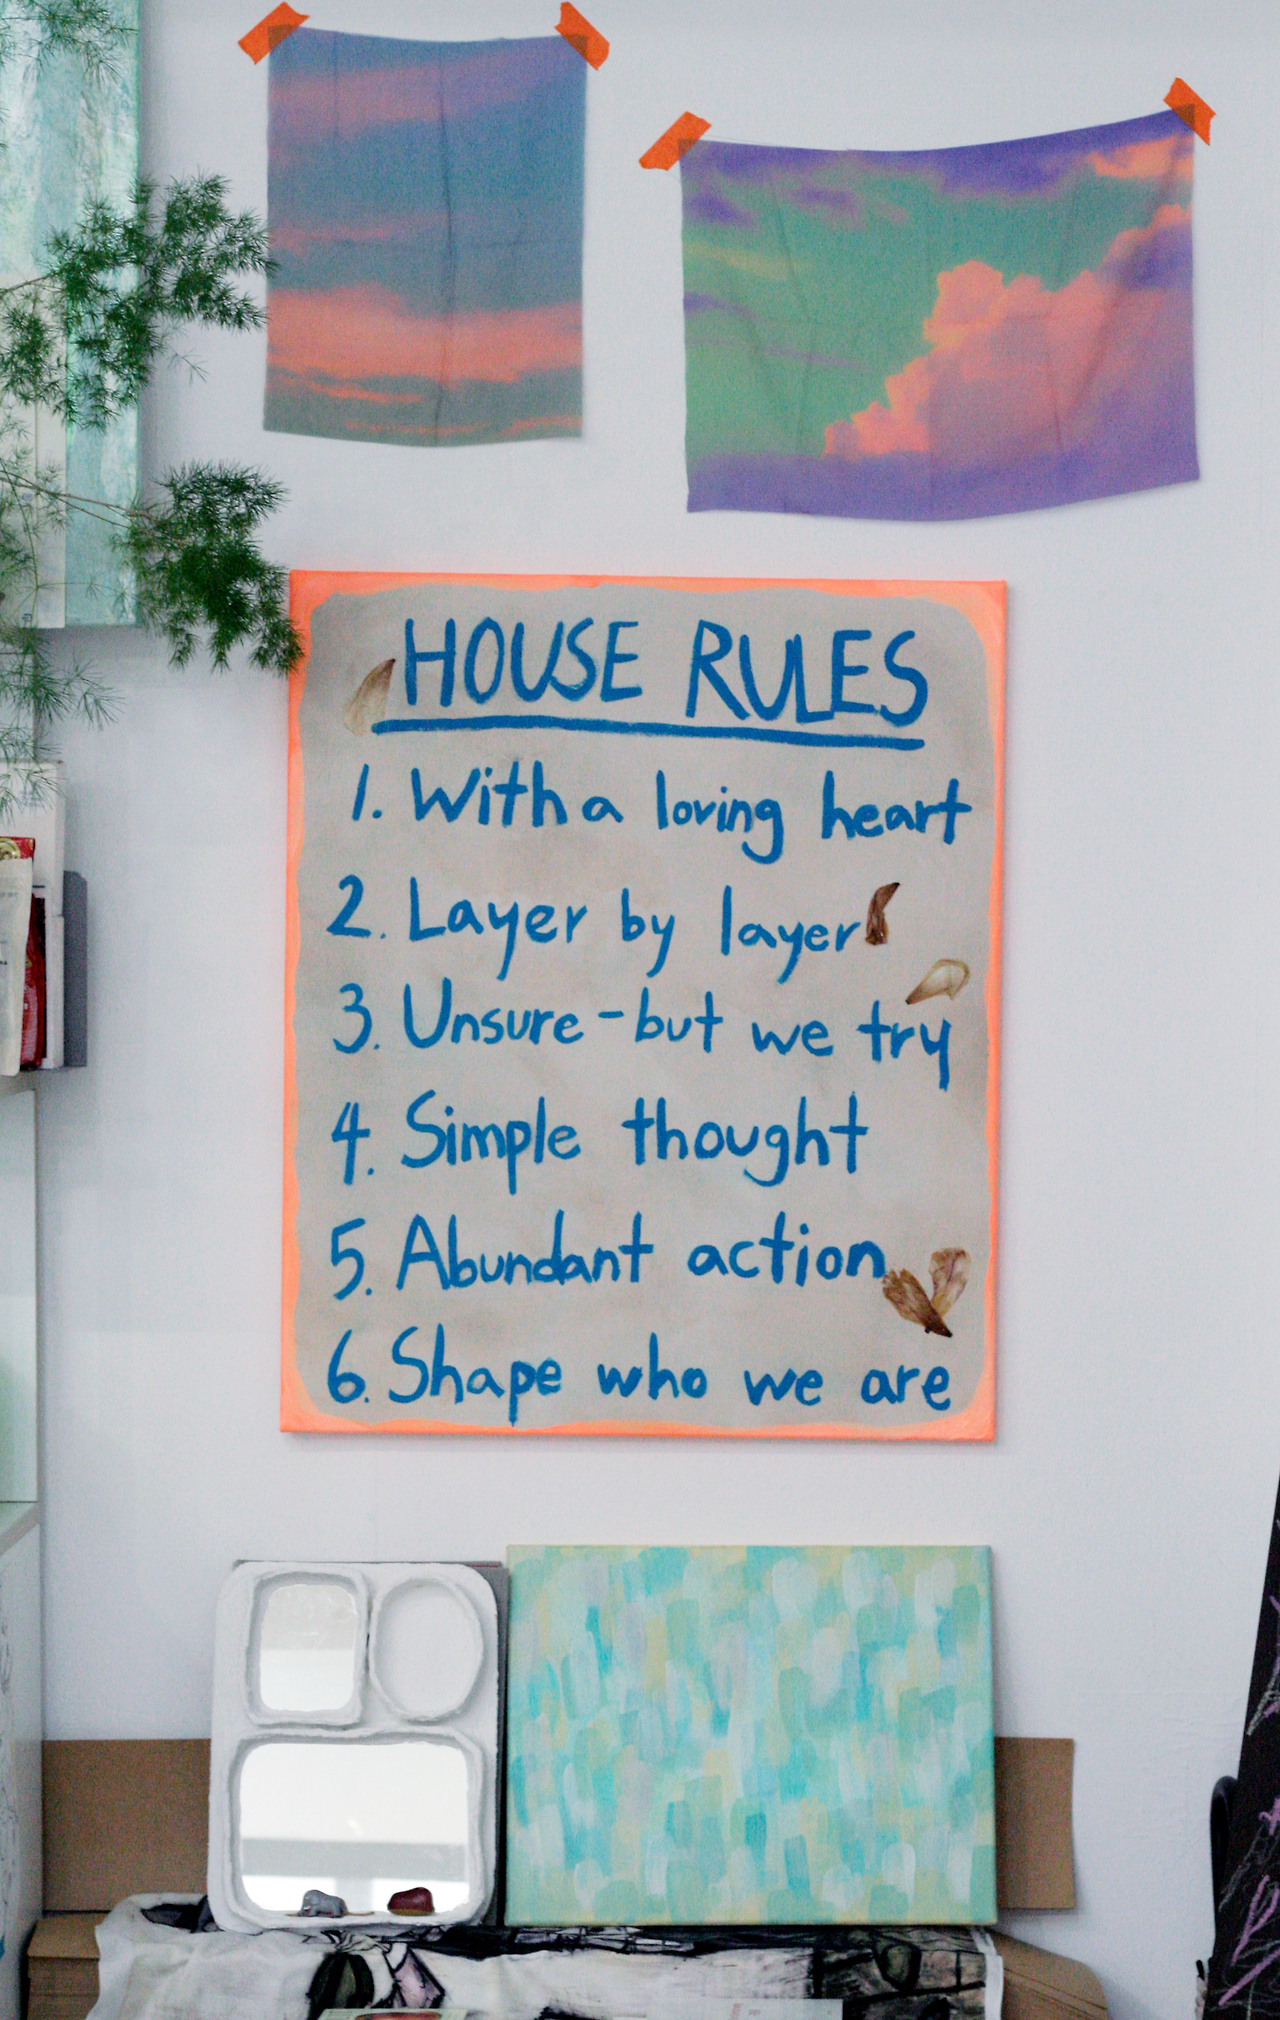 HOUSE RULES
1. With a loving heart
2. Layer by layer
3. Unsure - but we try
4. Simple thought
5. Abundant action
6. Shape who we are